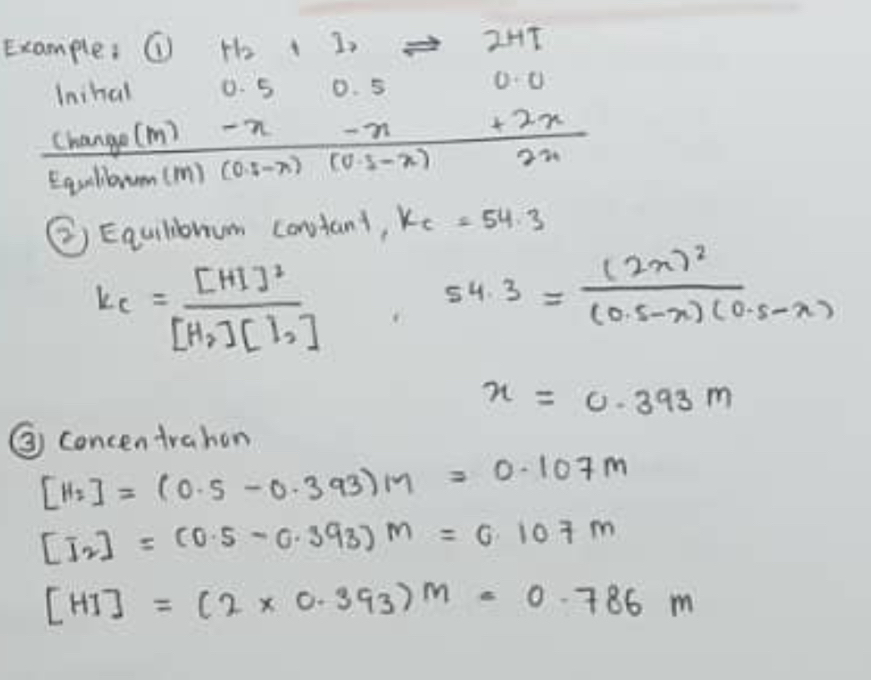 Example: ① H₂ + I₂ ⇌ 2HI
Inital 0.5 0.5 0.0
Change (M) -x -x +2x
Equilibrum (M) (0.5-x) (0.5-x) 2x
② Equilibrium constant, Kc = 54.3
Kc = [HI]² / [H₂][I₂] , 54.3 = (2x)² / (0.5-x)(0.5-x)
x = 0.393 M
③ Concentration
[H₂] = (0.5 - 0.393) M = 0.107 M
[I₂] = (0.5 - 0.393) M = 0.107 M
[HI] = (2 x 0.393) M = 0.786 M